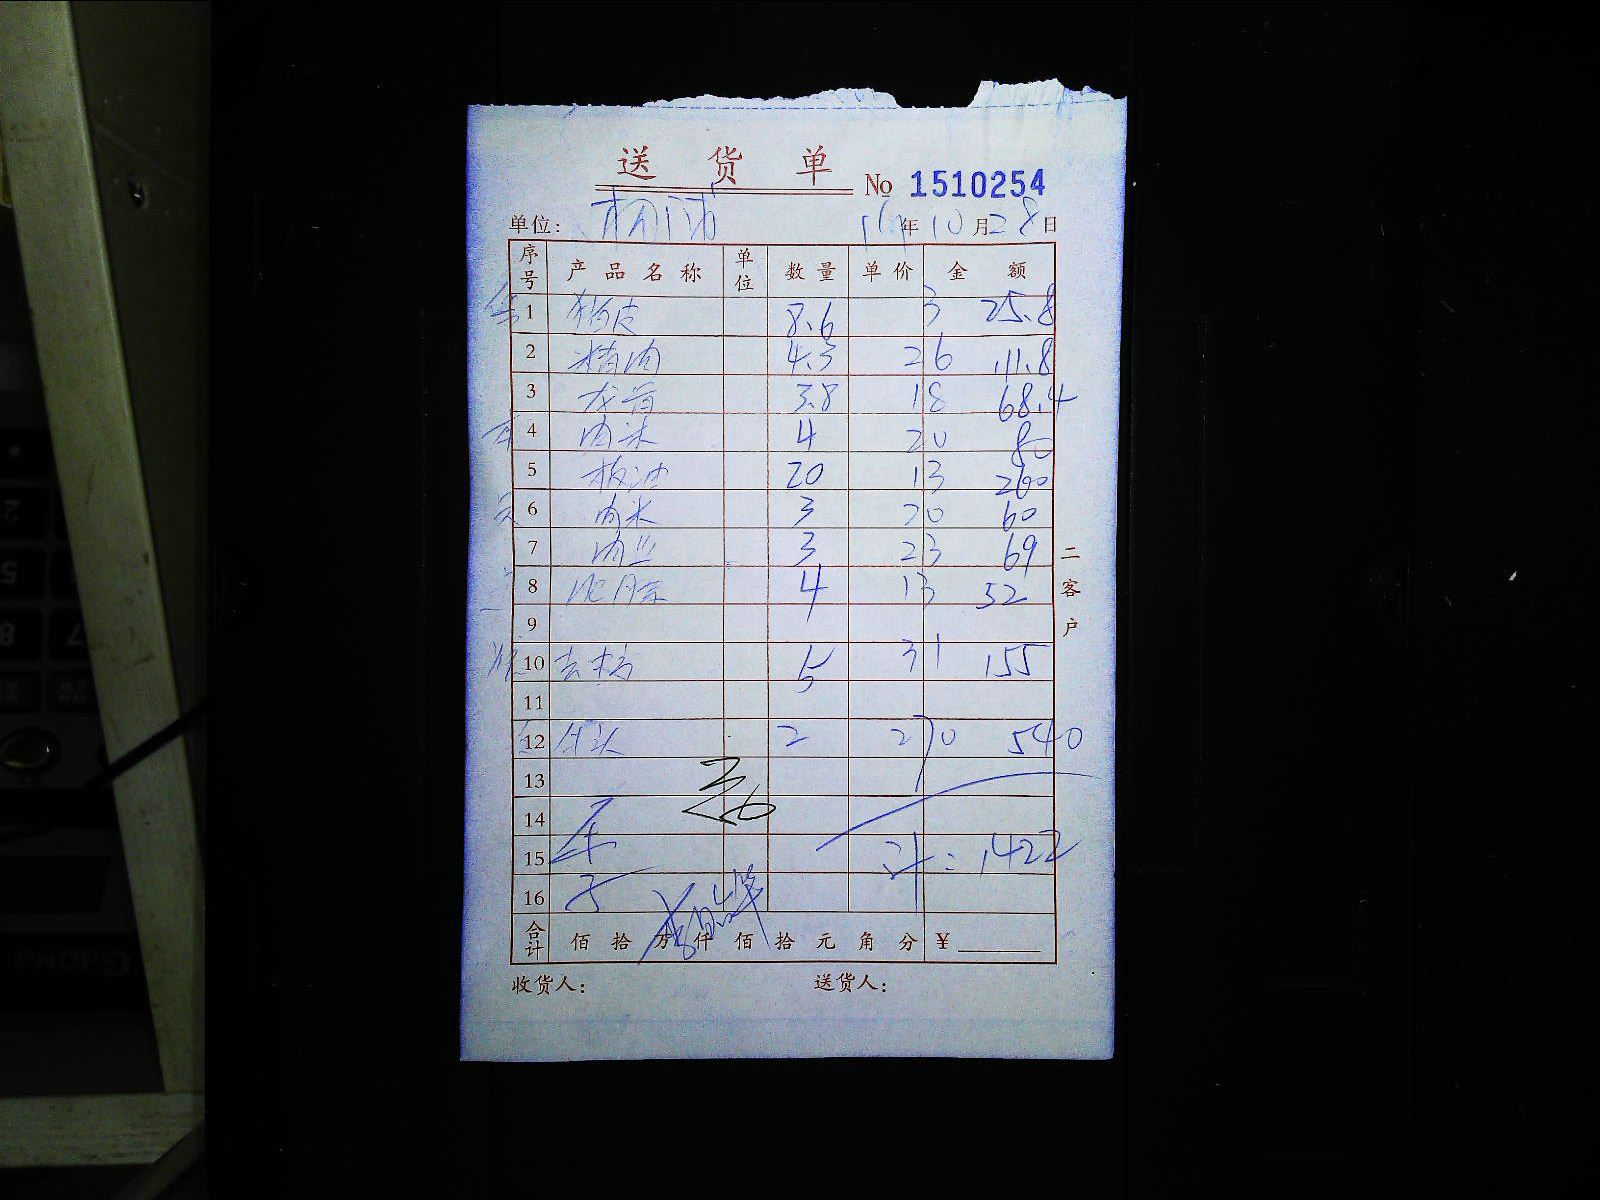 送货单 No 1510254
单位: 年10月28日
序号 产品名称 单位 数量 单价 金额
1 猪皮 8.6 3 25.8
2 精肉 4.3 26 111.8
3 龙骨 3.8 18 68.4
4 肉米 4 20 80
5 板油 20 13 260
6 肉米 3 20 60
7 肉丝 3 23 69
8 13 4 52
9
10 5 31 155
11
12 2 270 540
13
14
15 计:1422
16
合计 佰拾万仟佰拾元角分 ¥
收货人: 送货人:
二客户